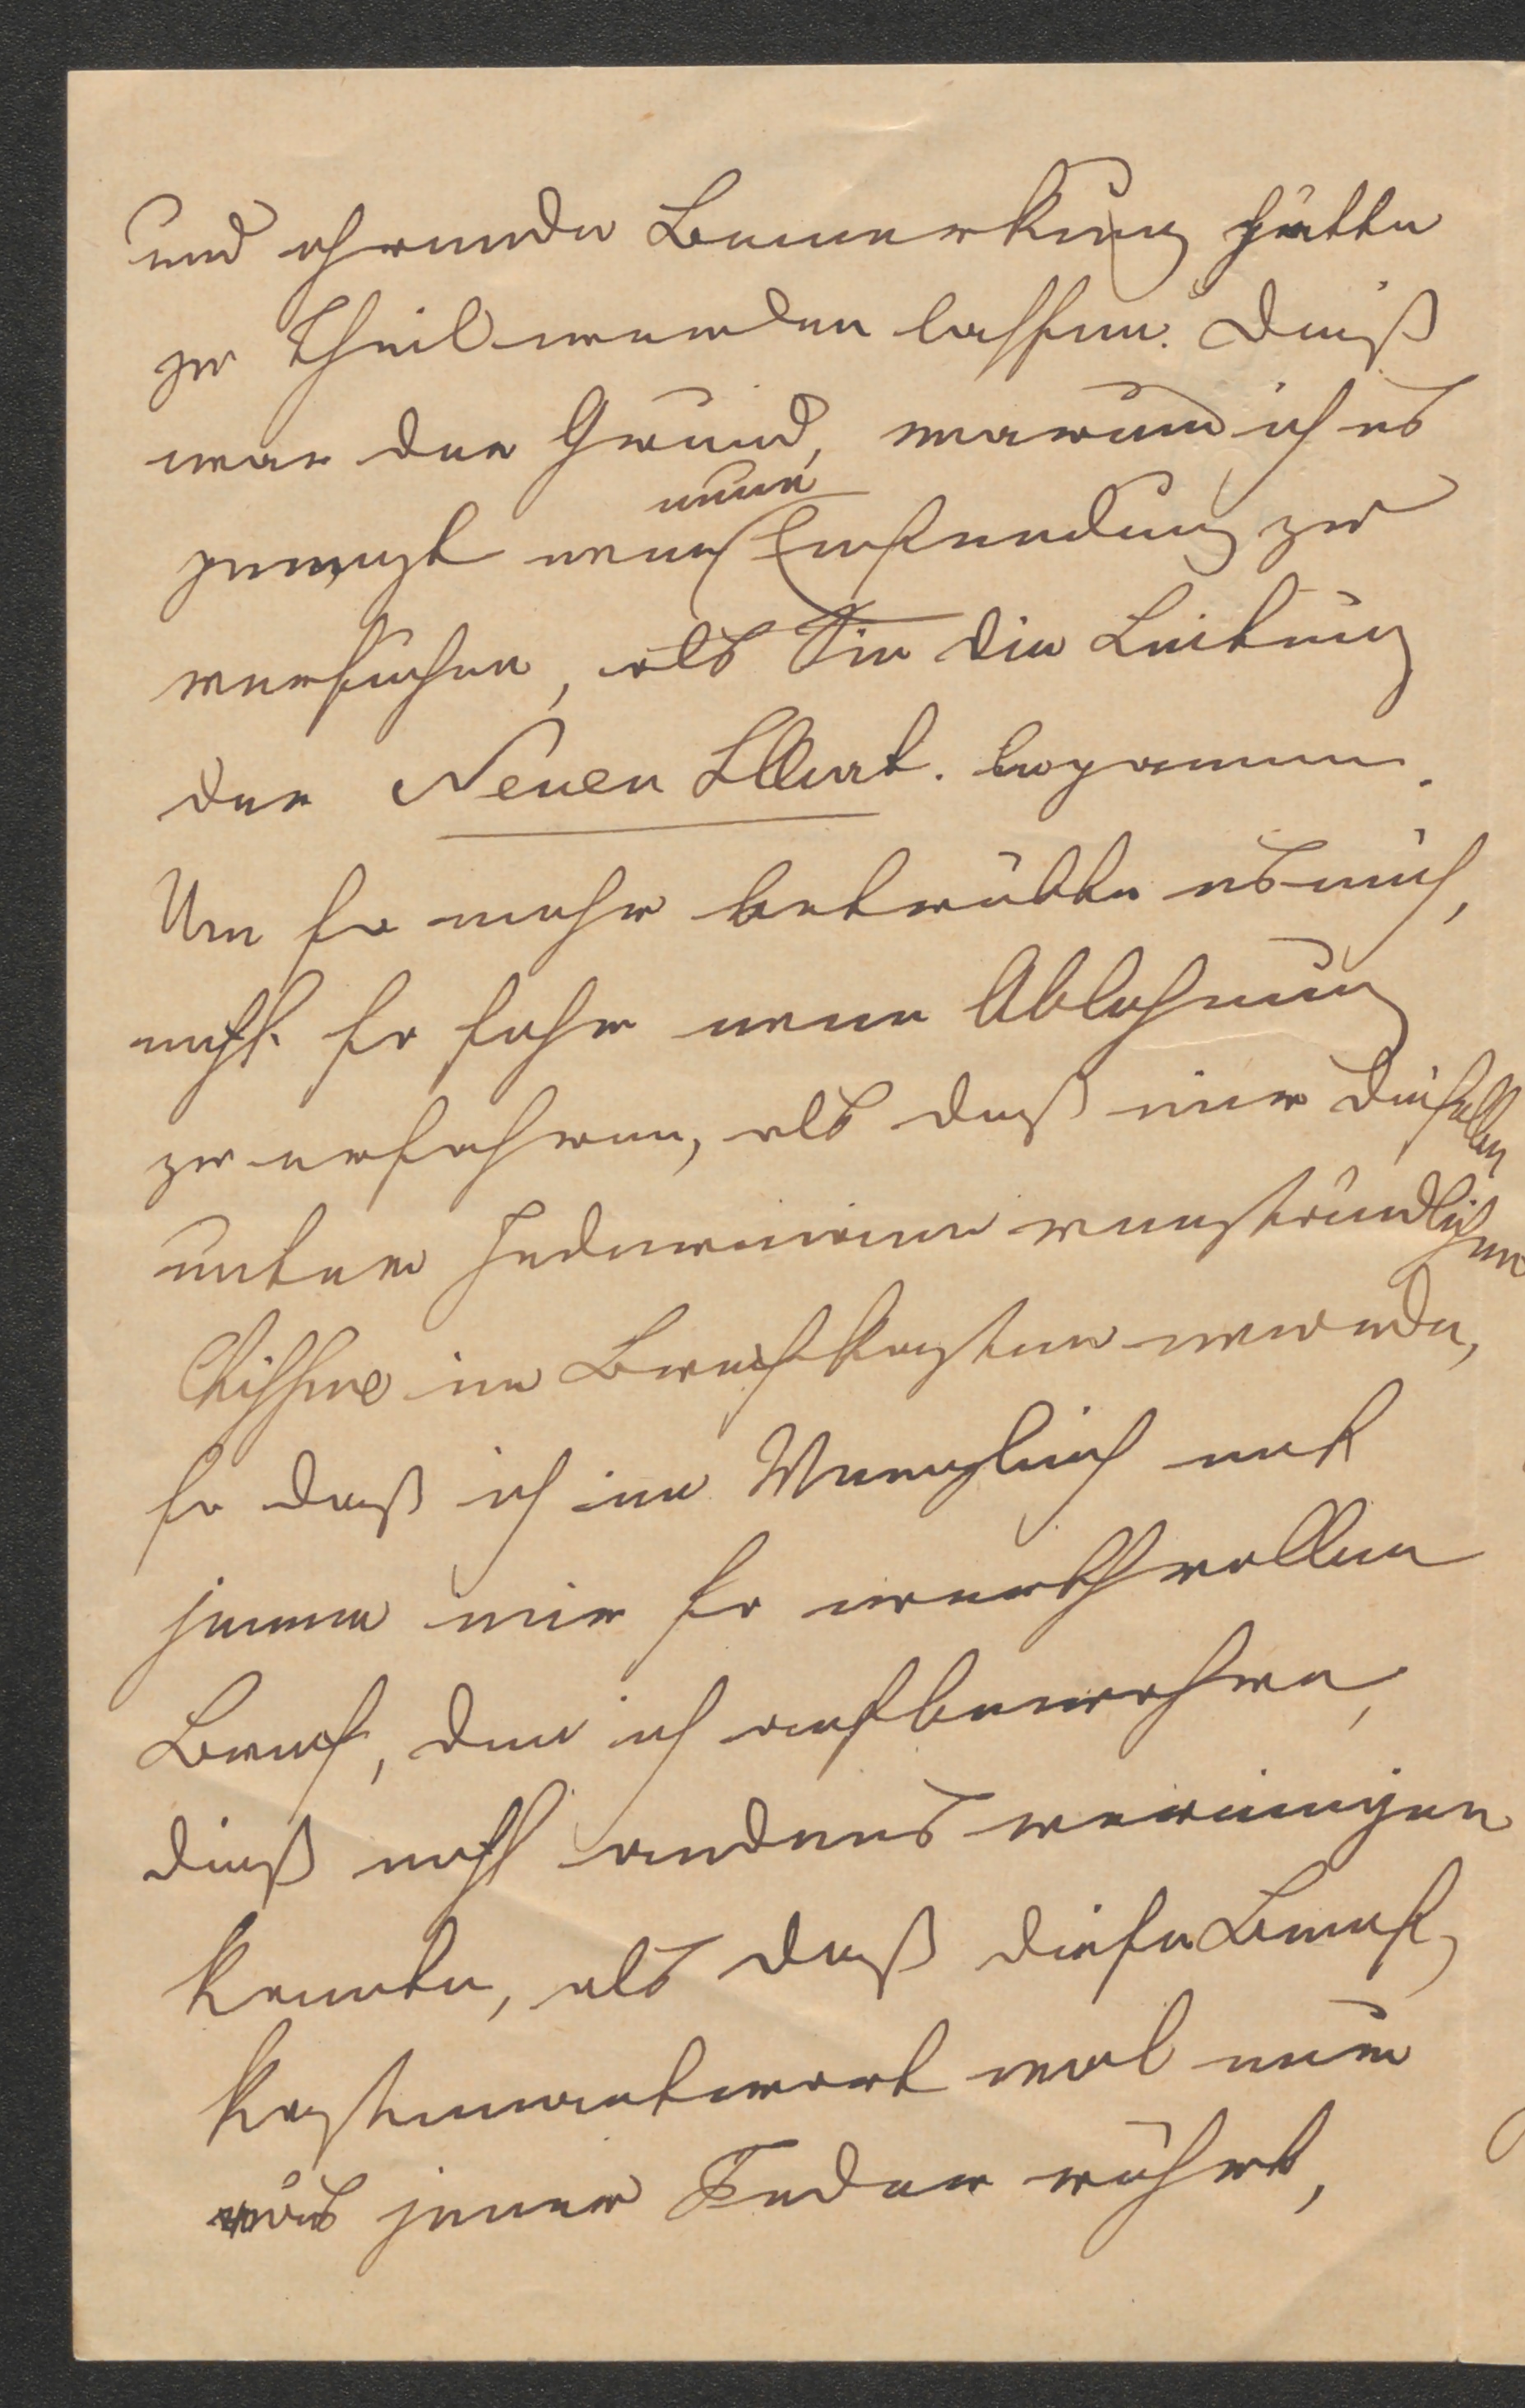 und ehrende Bemerkung hätte
zu Theil werden lassen. Dieß
war der Grund, warum ich es
gewagt eine neue Einsendung zu
versuchen, als Sie die Leitung
der Neuen Illust. begonnen.
Um so mehr betrübte es mich,
nicht so sehr eine Ablehnung
zu erfahren, als daß mir dieselbe
unter Jedermann verständlichen
Chiffre im Briefkasten wurde,
so daß ich im Vergleich mit
jenem mir so werthvollen
Brief, den ich aufbewahre,
dieß nicht anders vereinigen
konnte, als daß diese Brief-
kastenantwort wol nur
aus jener Feder rührt,